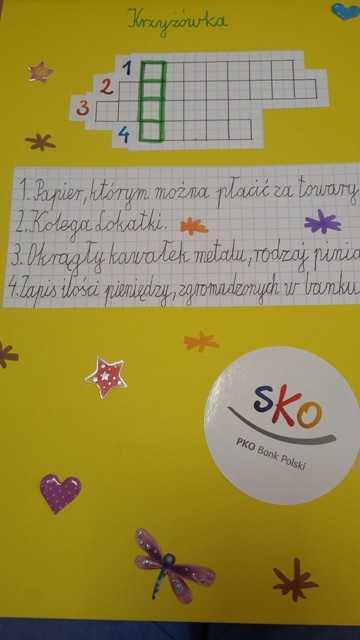 Krzyżówka
1
2
3
4
1. Papier, którym można płacić za towary
2. Kolega Lokatki.
3. Okrągły kawałek metalu, rodzaj
4. Zapis ilości pieniędzy, zgromadzonych w banku
SKO
PKO Bank Polski